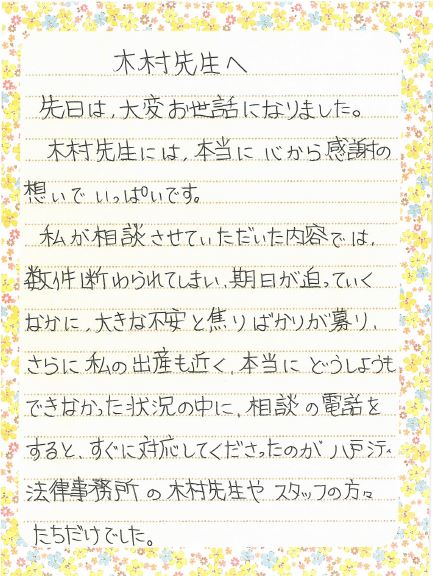 木村先生へ
先日は,大変お世話になりました。
木村先生には,本当に 心から感謝の
想いで いっぱいです。
私が相談させていただいた内容では,
数件断わられてしまい,期日が迫っていく
なかに,大きな不安と焦りばかりが募り,
さらに 私の出産も近く,本当に どうしようも
できなかった状況の中に,相談の電話を
すると,すぐに対応してくださったのが 八戸シティ
法律事務所の木村先生や スタッフの方々
たちだけでした。